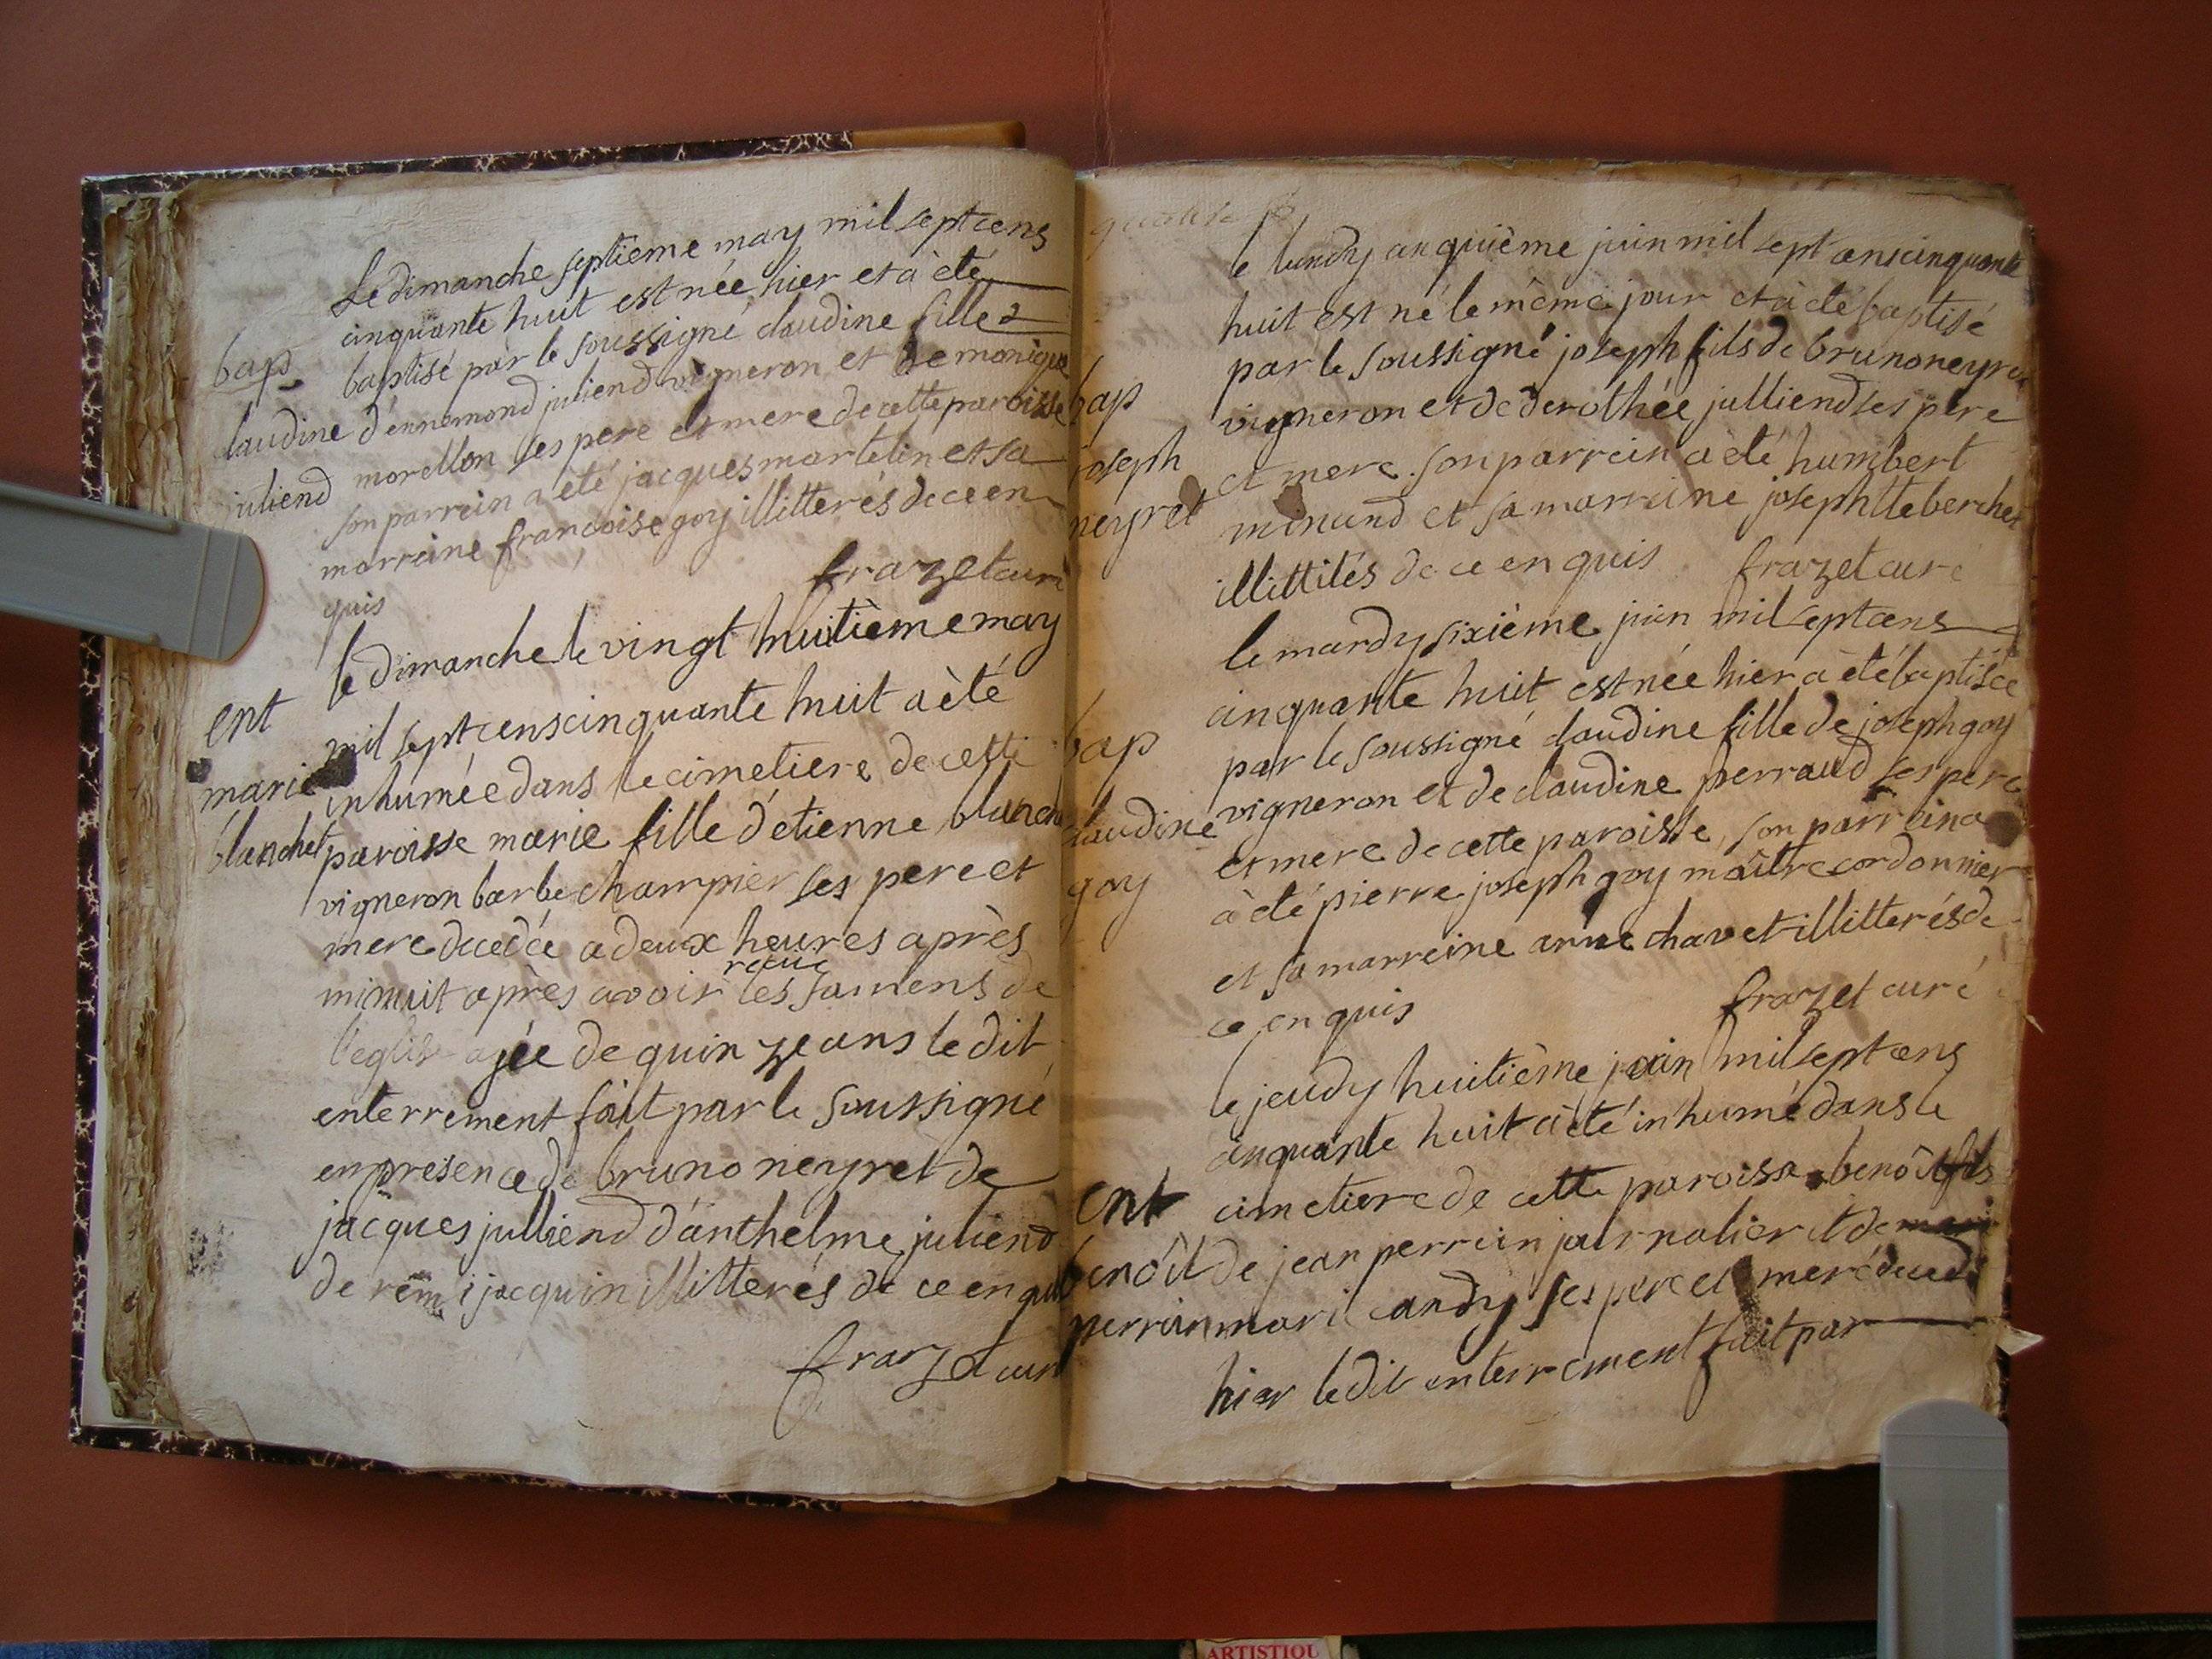 Le dimanche septieme may mil sept cens
cinquante huit est née hier et à èté
bap
baptisé par le soussigné claudine fille
claudine d'ennemond juliend vigneron et de monique
juliend morellon ses pere et mere de cette paroisse
son parrein a èté jacques martelin et sa
marreine francoise goy illitterés de ce en
quis
frazet curé
le dimanche le vingt huitième may
ent
mil sept cens cinquante huit a èté
marie
inhumée dans le cimetiere de cette
blanchet paroisse marie fille d'etienne blanchet
vigneron barbe champier ses pere et
mere decedée a deux heures après
recue
minuit après avoir les sacmens de
l'eglise agée de quinze ans le dit
enterrement fait par le soussigné
en presence de bruno neyret de
jacques julliend d'anthelme juliend
de remi jacquin illitterés de ce en quis
frazet curé
le lundy cinquième juin mil sept cens cinquante
huit est né le même jour et à èté baptisé
par le soussigné joseph fils de bruno neyret
bap
vigneron et de derothée julliend ses pere
joseph
et mere. son parrein à èté humbert
neyret
et sa marreine josephtte berchet
illittités de ce en quis frazet curé
le mardy sixième juin mil sept cens
cinquante huit est née hier à èté baptisée
bap
par le soussigné claudine fille de joseph goy
claudine
vigneron et de claudine perraud ses pere
et mere de cette paroisse, son parrein a
goy
à èté pierre joseph goy maître cordonnier
et sa marreine anne chavet illitterés de
ce en quis
frazet curé
le jeudy huitième juin mil sept cens
cinquante huit à èté inhumé dans le
ent
cimetiere de cette paroisse benôit fils
benôit de jean perrein journalier et de
perrein mari candy ses pere et mere decedé
hier le dit enterrement fait par
ARTISTIQU